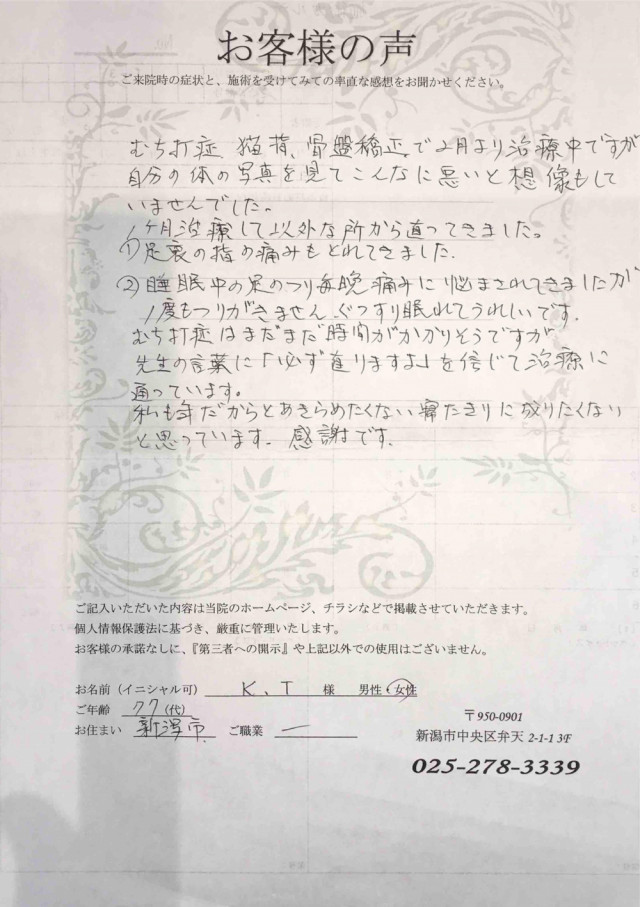 お客様の声
ご来院時の症状と、施術を受けてみての率直な感想をお聞かせください。
むち打症、猫背、骨盤矯正で2月より治療中ですが
自分の体の写真を見てこんなに悪いと想像もして
いませんでした。
1ヶ月治療して以外な所から直ってきました。
①足裏の指の痛みもとれてきました.
②睡眠中の足のつり毎晩痛みに悩まされてきましたが
1度もつりがきません ぐっすり眠れてうれしいです.
むち打症はまだまだ時間がかかりそうですが
先生の言葉に「必ず直りますよ」を信じて治療に
通っています。
私も年だからとあきらめたくない寝たきりに成りたくない
と思っています. 感謝です.
ご記入いただいた内容は当院のホームページ、チラシなどで掲載させていただきます。
個人情報保護法に基づき、厳重に管理いたします。
お客様の承諾なしに、『第三者への開示』や上記以外での使用はございません。
お名前（イニシャル可） K、T 様 男性・女性
ご年齢 77（代）
お住まい 新潟市. ご職業 ー
〒950-0901
新潟市中央区弁天 2-1-1 3F
025-278-3339